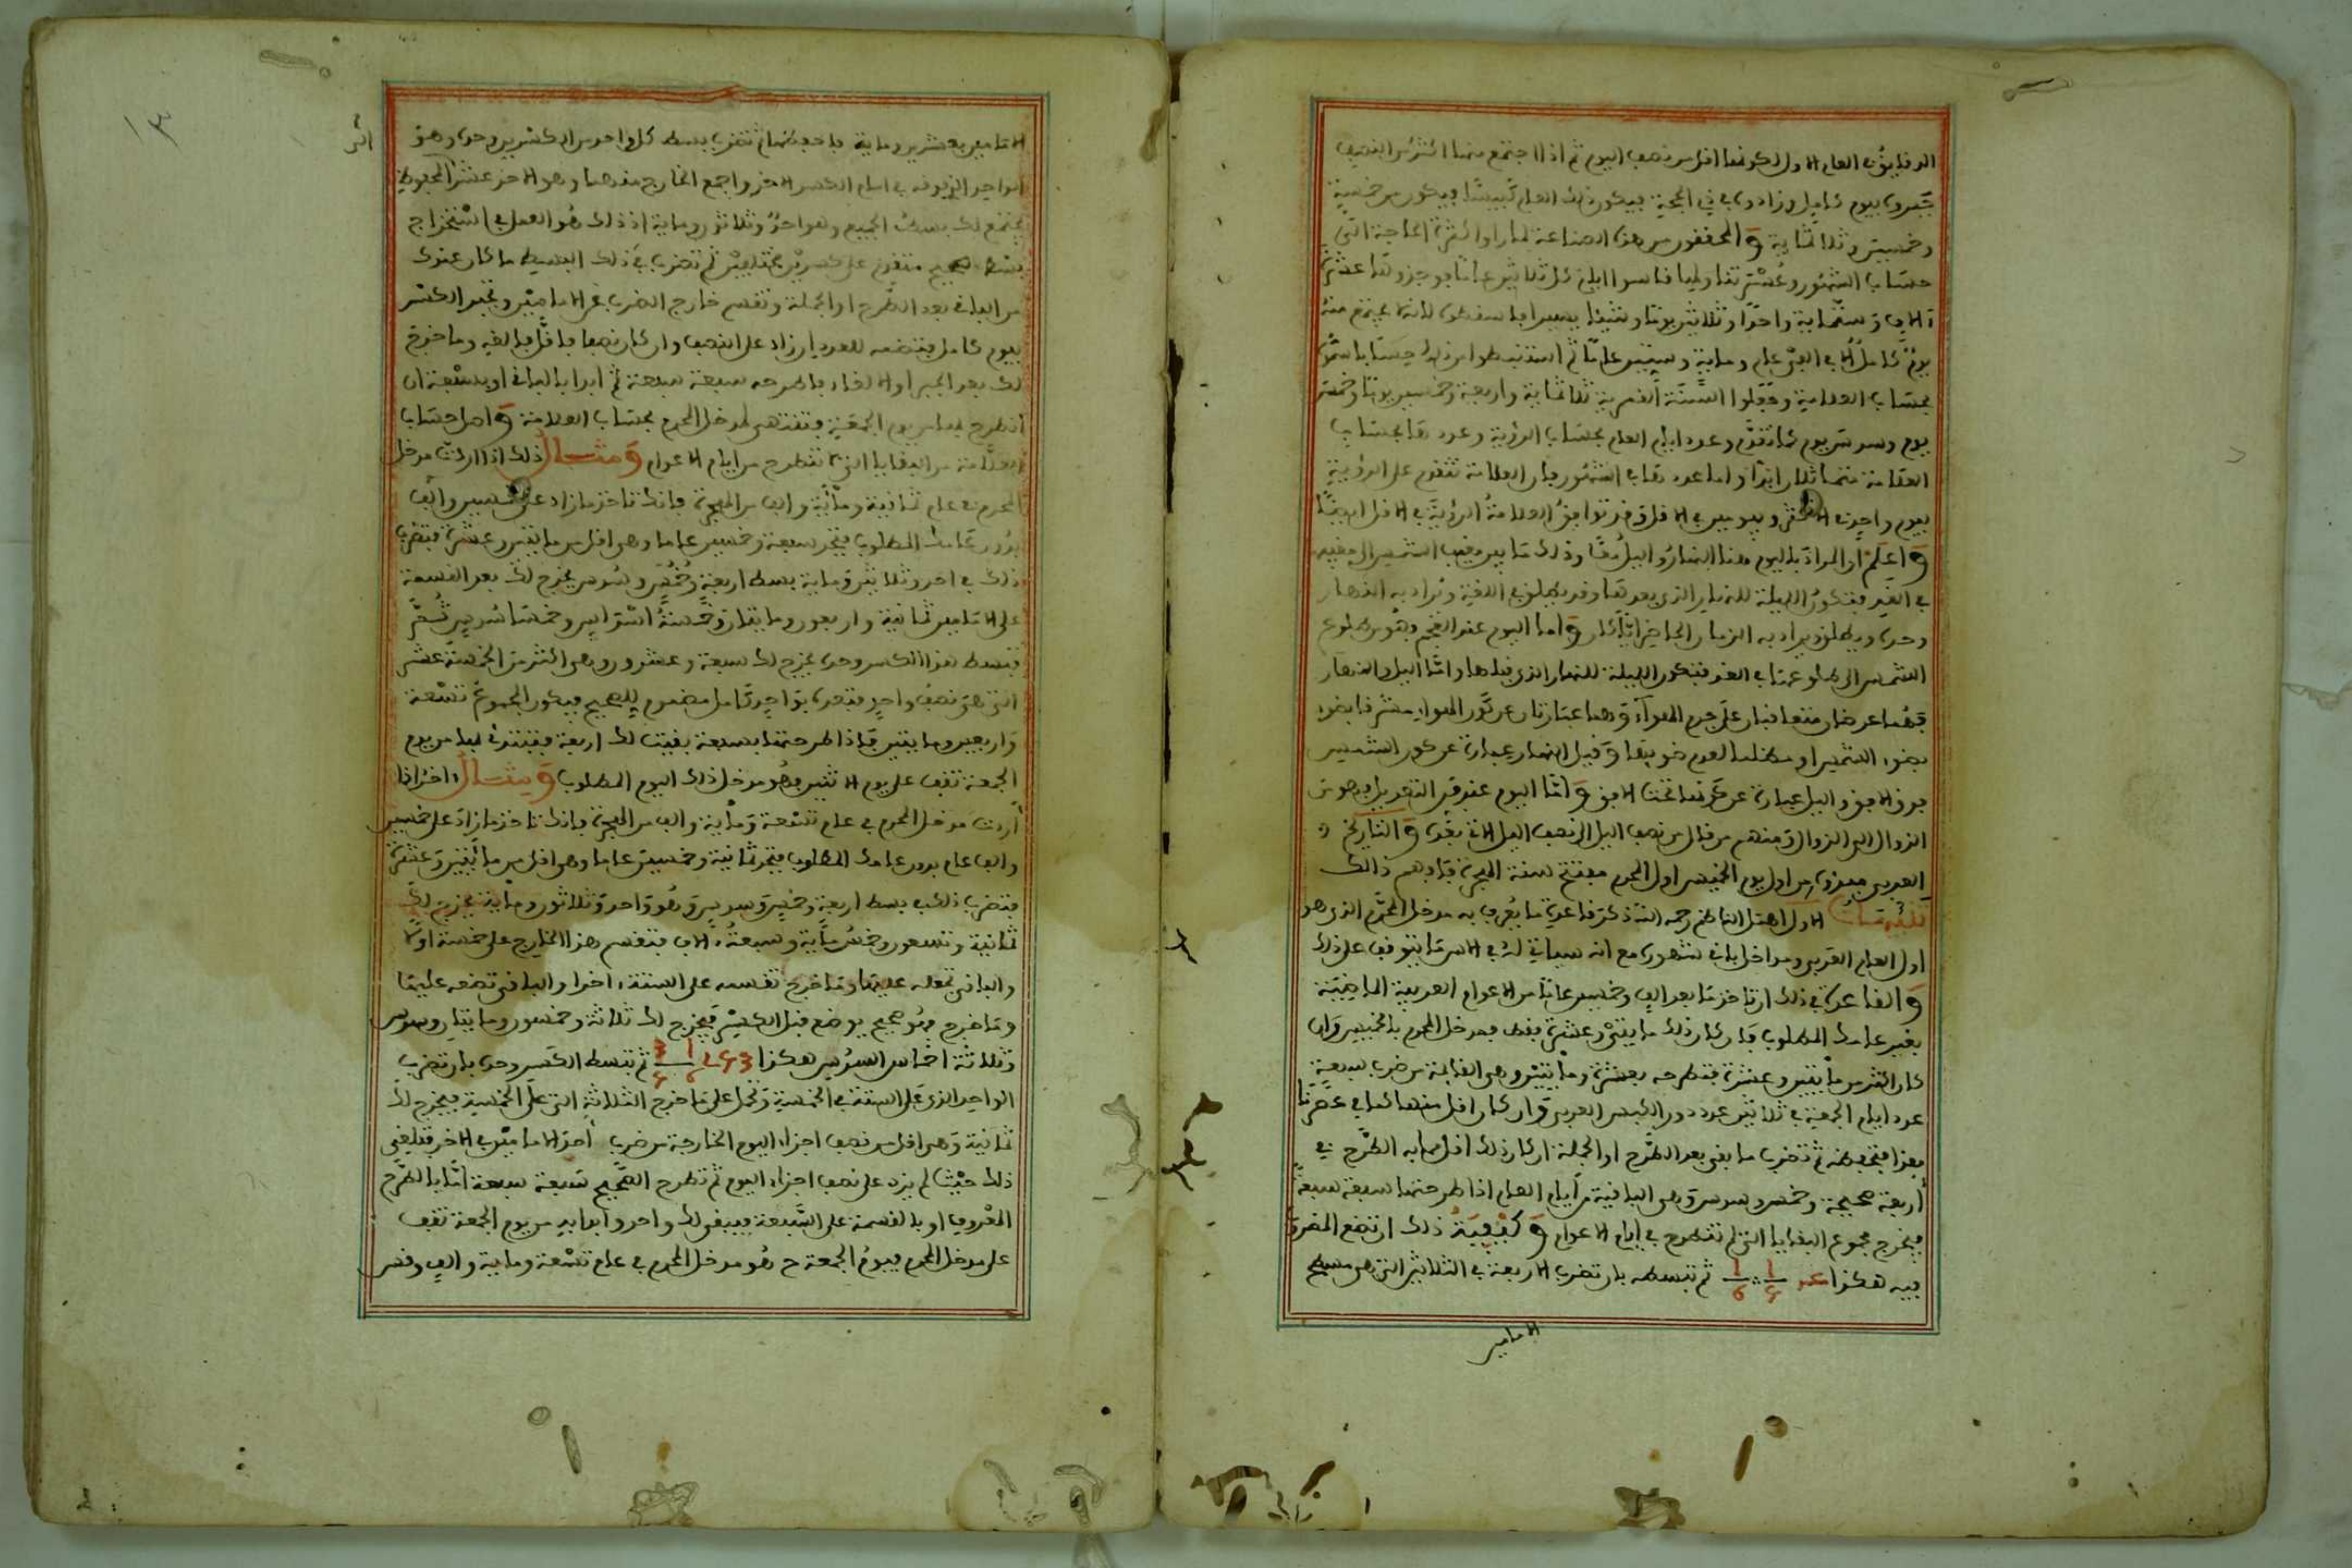 الدقايق العام الاول لكونها اقل من نصف اليوم ثم اذا اجتمع منها اكثر من النصف
بيوم كامل وزادوه في ذي الحجة فيكون ذلك العام كبيسًا ويكون من خمسة
وخمسين وثلاثماية والمحققون من هذه الصناعة لما راوا كثرة الحاجة الى
حساب الشهور
يوم كامل في الفي عام وماية وستين عامًا ثم استنبطوا من ذلك حسابا سموه
بحساب العلامة وجعلوا السنة القمرية ثلاثماية واربعة وخمسين يوما وخمس
يوم وسدس يوم كما تقدم وعدد ايام العام بحساب الرؤية وعددها بحساب
العلامة منهما ثلاث ابدا واما عدد في الشهور فان العلامة تتقدم على الرؤية
بيوم واحد في الاكثر وبيومين في الاقل وقد توافق العلامة الرؤية في الاقل ايضًا
واعلم ان المراد باليوم هنا النهار والليل معًا وذلك ما بين مغيب الشمس الى مغيبها
في الغد فتكون الليلة للنهار الذي بعدها وقد يطلق في اللغة ويراد به النهار
وحده ويطلق ويراد به الزمان الحاضر ايًّا كان واما اليوم عند العجم فهو من طلوع
الشمس الى طلوعها في الغد فتكون الليلة للنهار الذي قبلها واما الليل والنهار
فهما عرضان متعاقبان على جرم الهواء وهما عبارتان عن تكوّر الهواء مشرقا بضوء
بضوء الشمس او مظلما لعدم ضوئها وقيل النهار عبارة عن كون الشمس
فوق الافق والليل عبارة عن كونها تحت الافق واما اليوم عند اهل التعديل فهو من
الزوال الى الزوال ومنهم من قال من نصف الليل الى نصف الليل الاتي بعده والتاريخ
العربي معدود من اول يوم الخميس اول المحرم مفتتح سنة الهجرة فافهم ذالك
تنبيهات الاول اهمل الناظم رحمه الله ذكر قاعدة ما يعرف به مدخل المحرم الذي هو
اول العام العربي ومداخل باقي شهوره مع انه سياتي له في الاس ما يتوقف على ذلك
والقاعدة في ذلك ان تاخذ ما بعد الف وخمسين عاما من الاعوام العربية الماضية
بغير عامك المطلوب فان كان ذلك مايتين وعشرة فقط فمدخل المحرم بالخميس وان
كان اكثر من مايتين وعشرة فتطرحه بعشرة ومايتين وهي القائمة من ضرب سبعة
عدد ايام الجمعة في ثلاثين عدد دور الكبس العربي وان كان اقل منها كما في عصرنا
هذا فتحفظه ثم تضرب ما بقي بعد الطرح او الجملة ان كان ذلك اقل مما به الطرح في
اربعة صحيحة وخمس وسدس وهي الباقية من ايام العام اذا طرحتها سبعة سبعة
فيخرج مجموع البقايا التي لم تنطرح في ايام الاعوام وكيفية ذلك ان تضع المضروب
فيه هكذا ثم تبسطه بان تضرب الاربعة في الثلاثين التي هي مسطح
الامامين
الامامين بعشرين وماية فاحفظها ثم تضرب بسط كل واحد من الكسرين وحده وهو
الواحد الذي فوقه في امام الكسر الاخر واجمع الخارج منهما وهو الاحد عشر الى المحفوظ
يجتمع لك بسط الجميع وهو احد وثلاثون وماية اذ ذلك هو العمل في استخراج
بسط صحيح متقدم على كسرين مختلفين ثم تضرب في ذلك البسيط ما كان عندك
من الباقي بعد الطرح او الجملة وتقسم خارج الضرب على الامامين وتجبر الكسر
بيوم كامل فتضعه للعدد ان زاد على النصف وان كان نصفا فاقل فالغه وما خرج
لك بعد الجبر او الالغاء فاطرحه سبعة سبعة ثم ابدا بالباقي او بسبعة ان
انطرح لها من يوم الجمعة فتنتهي لمدخل المحرم بحساب العلامة واصل حساب
العلامة من البقايا التي تنطرح من ايام الاعوام ومثال ذلك اذا اردت مدخل
المحرم في عام ثمانية وماية والف من الهجرة فانك تاخذ ما زاد على خمسين والف
بدون عامك المطلوب فتجد سبعة وخمسين عاما وهي اقل من مايتين وعشرة فتضرب
ذلك في احد وثلاثين وماية بسط اربعة وخمس وسدس يخرج لك بعد القسمة
على الامامين ثمانية واربعون ومايتان وخمسة اسداس وخمسا سدس ثم
تبسط هذا الكسر وحده يخرج لك سبعة وعشرون وهي اكثر من الخمسة عشر
التي هي نصف واحد فتعده بواحد كامل مضموم للصحيح فيكون المجموع تسعة
واربعين ومايتين فاذا طرحتها بسبعة بقيت لك اربعة فتبتدئ لها من يوم
الجمعة تقف على يوم الاثنين وهو مدخل ذلك اليوم المطلوب ومثال اخر اذا
اردت مدخل المحرم في عام تسعة وماية والف من الهجرة فانك تاخذ ما زاد على خمسين
والف عام بدون عامك المطلوب فتجد ثمانية وخمسين عاما وهي اقل من مايتين وعشرة
فتضرب ذلك في بسط اربعة وخمس وسدس وهو واحد وثلاثون وماية يخرج لك
ثمانية وتسعون وخمس ماية وسبعة الاف فتقسم هذا الخارج على خمسة اولا
والباقي تجعله عليها وما خرج تقسمه على الستة اخرا والباقي تضعه عليها
وما خرج فهو صحيح يوضع قبل الكسر فيخرج لك ثلاثة وخمسون ومايتان وسدس
وثلاثة اخماس السدس هكذا ثم تبسط الكسر وحده بان تضرب
الواحد الذي على الستة في الخمسة وتحمل على ما خرج الثلاثة التي على الخمسة فيخرج لك
ثمانية وهي اقل من نصف اجزاء اليوم الخارجة من ضرب احد الامامين في الاخر فتلغي
ذلك حيث لم يزد على نصف اجزاء اليوم ثم تطرح الصحيح سبعة سبعة اما بالطرح
المعروف او بالقسمة على السبعة فيبقى لك واحد وابدا به من يوم الجمعة تقف
على مدخل المحرم فيوم الجمعة ح هو مدخل المحرم في عام تسعة وماية والف وقس